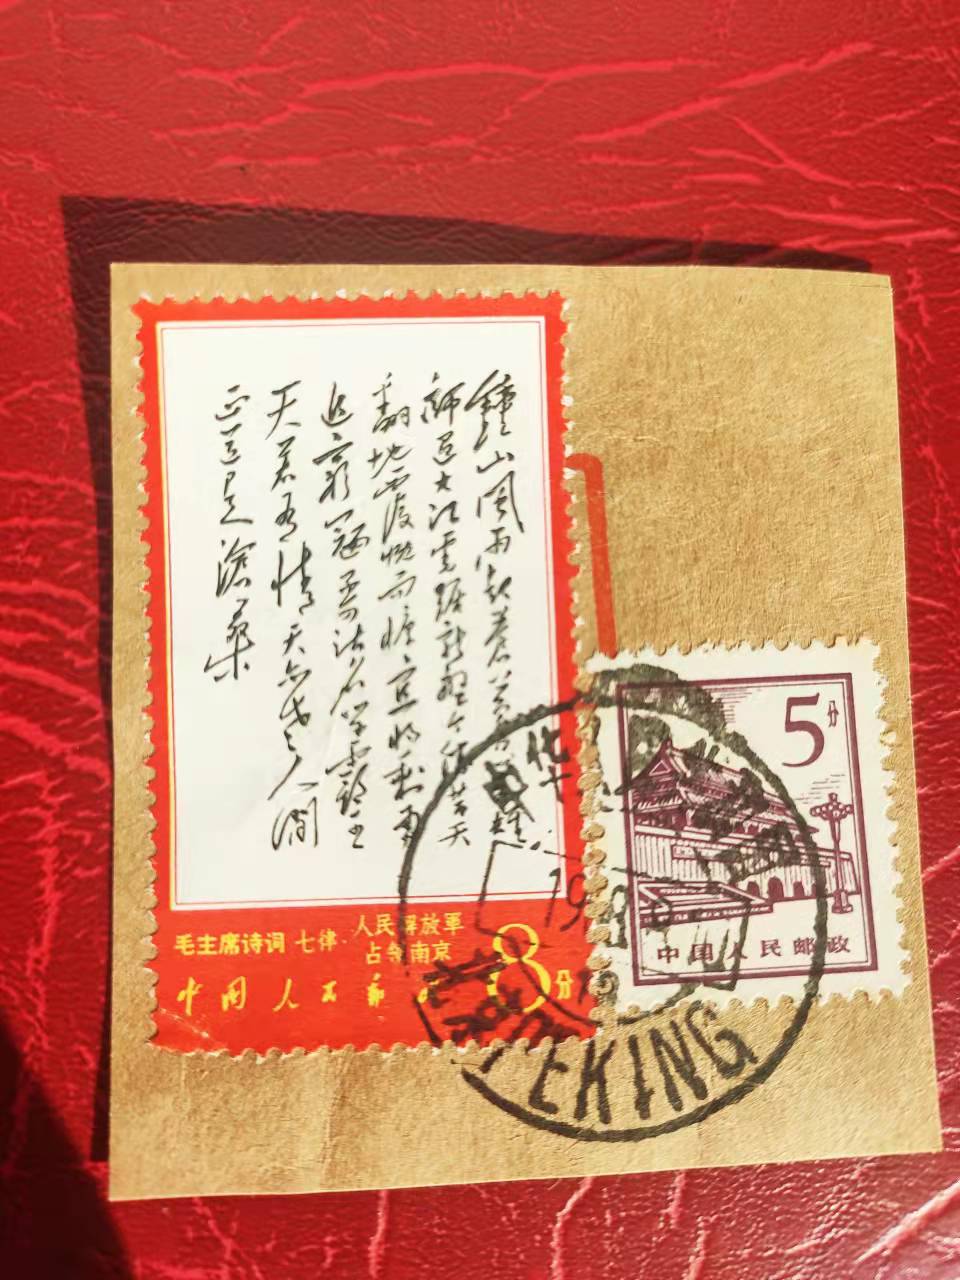 鐘山風雨起蒼黄百萬雄
師過大江虎踞龍盤今勝昔天
翻地覆慨而慷宜將剩勇
追窮寇不可沽名學霸王
天若有情天亦老人間
正道是滄桑
毛主席诗词 七律·人民解放軍
占领南京
中国人民邮政 8分
5分
中国人民邮政
PEKING